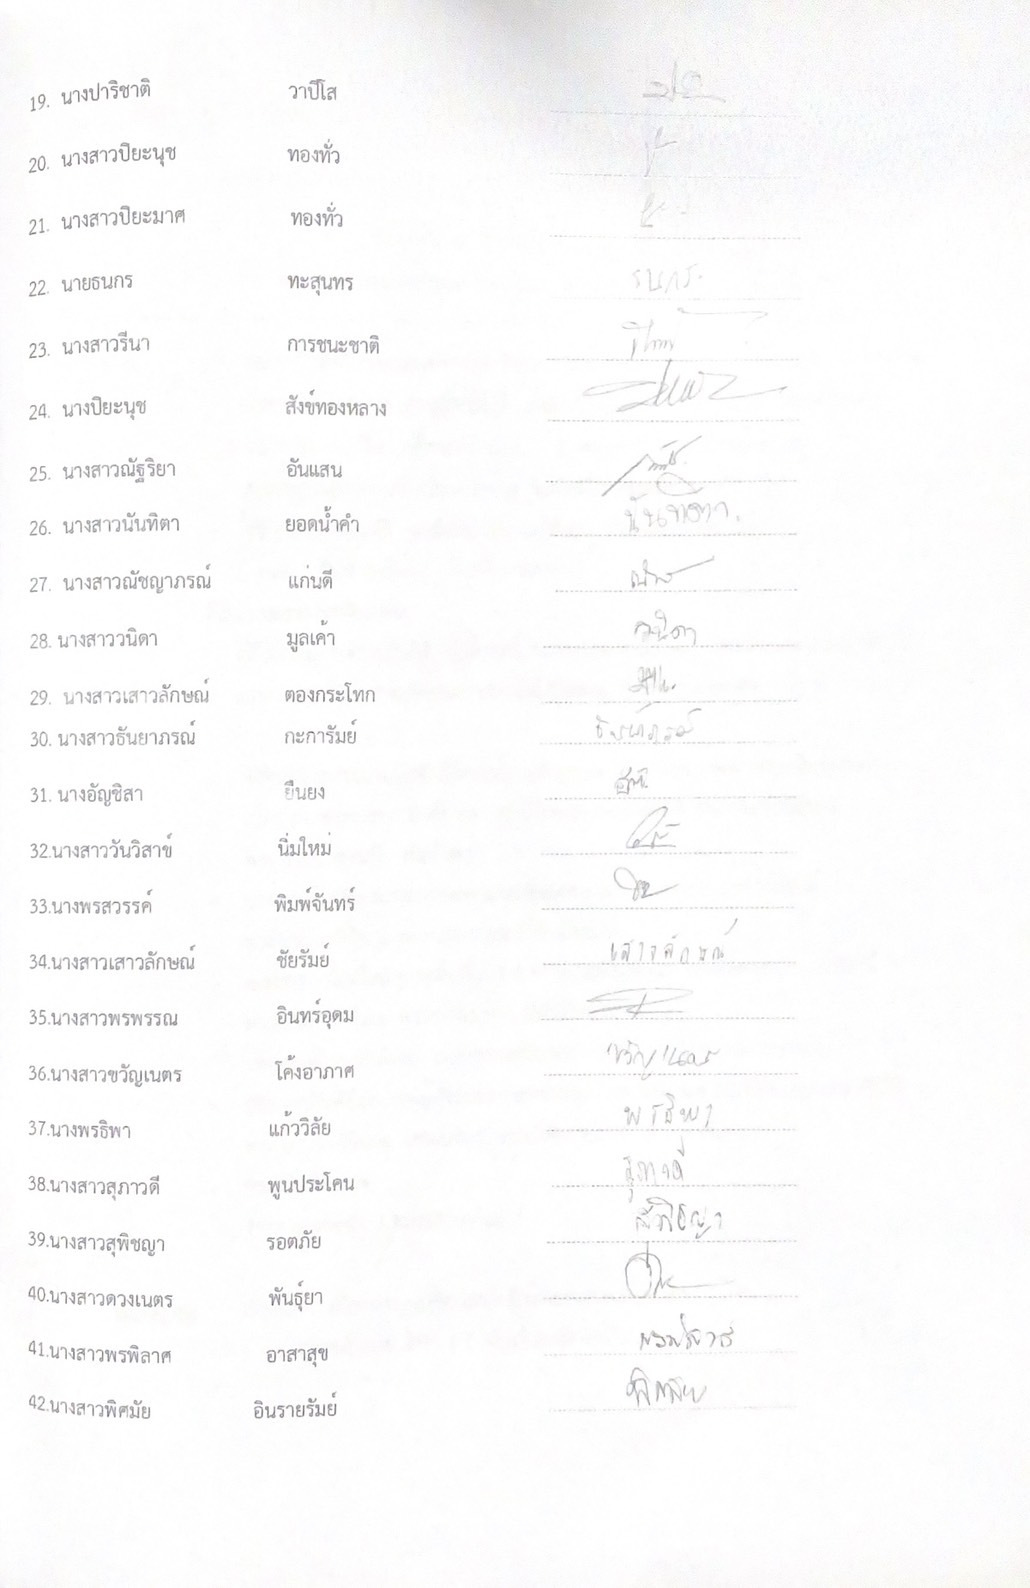 19. นางปาริชาติ วาปีโส
20. นางสาวปิยะนุช ทองทั่ว
21. นางสาวปิยะมาศ ทองทั่ว
22. นายธนกร ทะสุนทร ธนกร
23. นางสาวรีนา การชนะชาติ
24. นางปิยะนุช สังข์ทองหลาง
25. นางสาวณัฐริยา อันแสน
26. นางสาวนันทิตา ยอดน้ำคำ นันทิตา
27. นางสาวณัชญาภรณ์ แก่นดี
28. นางสาววนิดา มูลเค้า วนิดา
29. นางสาวเสาวลักษณ์ ตองกระโทก
30. นางสาวธันยาภรณ์ กะการัมย์ ธันยาภรณ์
31. นางอัญชิสา ยืนยง
32.นางสาววันวิสาข์ นิ่มใหม่
33.นางพรสวรรค์ พิมพ์จันทร์
34.นางสาวเสาวลักษณ์ ชัยรัมย์ เสาวลักษณ์
35.นางสาวพรพรรณ อินทร์อุดม
36.นางสาวขวัญเนตร โค้งอาภาศ ขวัญเนตร
37.นางพรธิพา แก้ววิลัย พรธิพา
38.นางสาวสุภาวดี พูนประโคน สุภาวดี
39.นางสาวสุพิชญา รอตภัย สุพิชญา
40.นางสาวดวงเนตร พันธุ์ยา
41.นางสาวพรพิลาศ อาสาสุข
42.นางสาวพิศมัย อินรายรัมย์